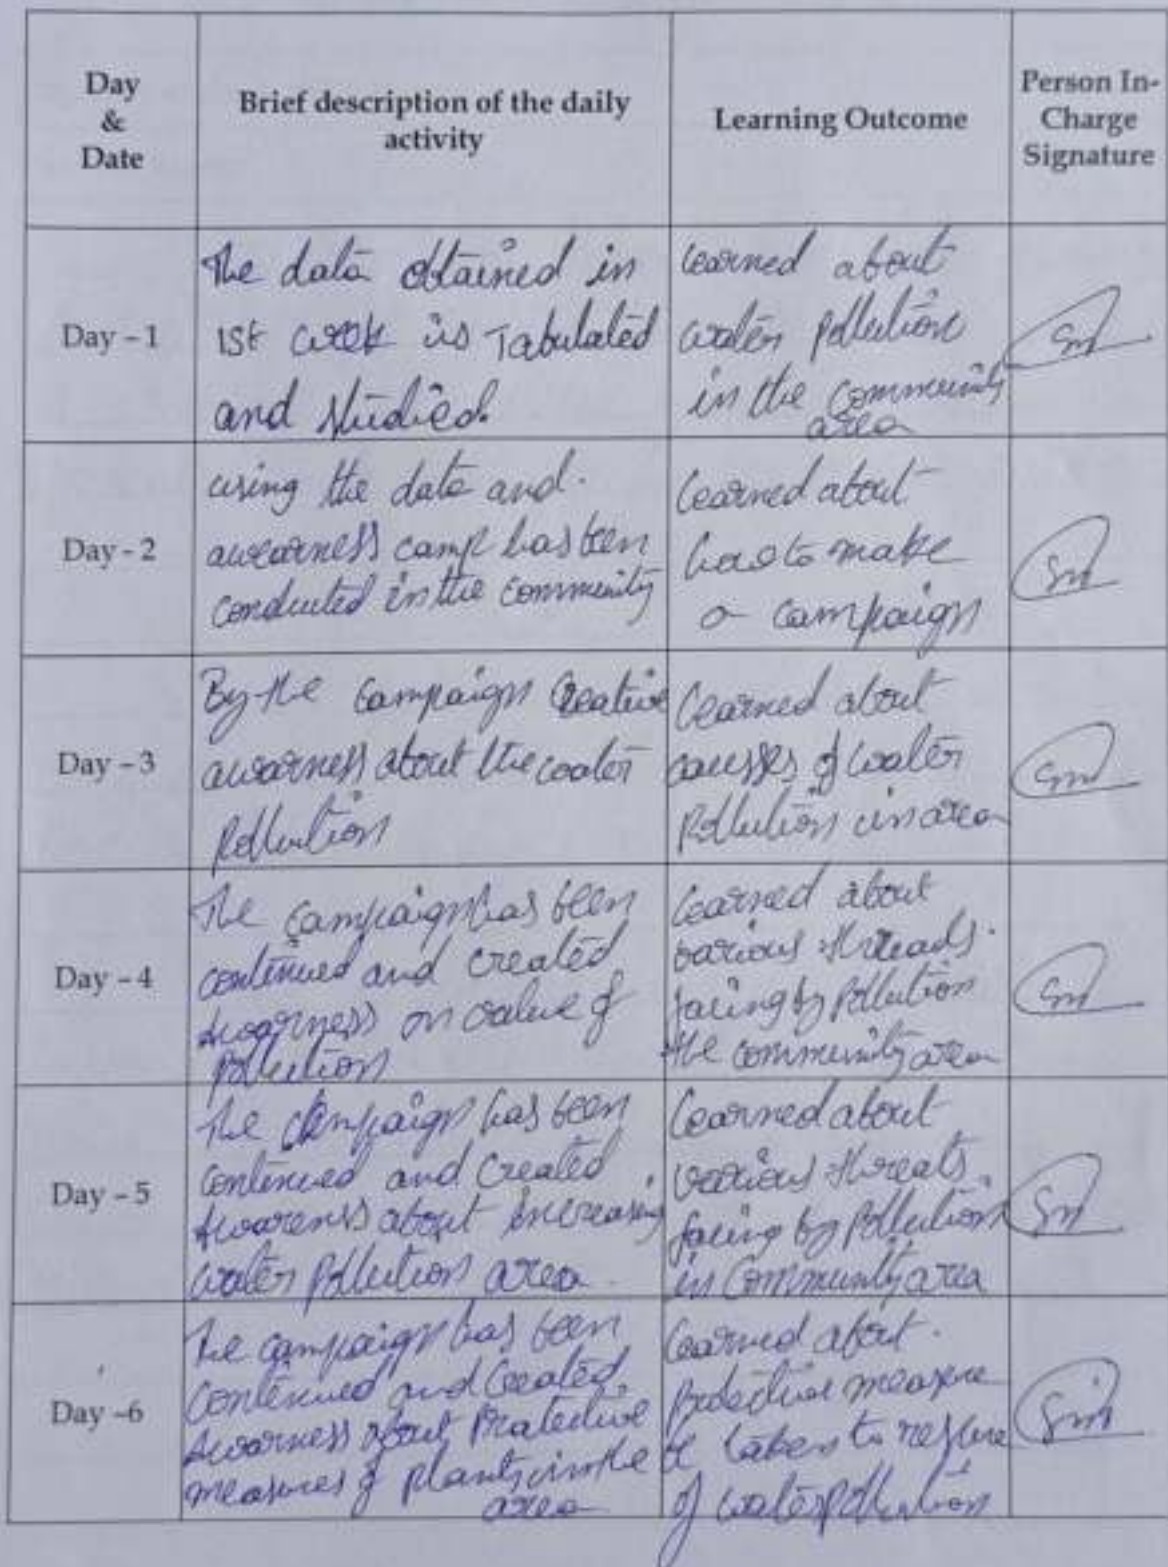 Day
&
Date
Brief description of the daily
activity
Learning Outcome
Person In-
Charge
Signature
Day - 1
The data obtained in
1st week is Tabulated
and studied.
Learned about
water pollution
in the community
area
Day - 2
using the data and
awearness camp has been
conducted in the community
Learned about
how to make
a campaign
Day - 3
By the campaign Creative
awarness about the water
pollution
Learned about
causses of water
pollution in area
Day - 4
The campaign has been
continued and created
Awarness on value of
pollution
Learned about
various threads
facing by pollution
the community area
Day - 5
The campaign has been
continued and created
Awarenss about increasing
water pollution area
Learned about
various threats
facing by pollution
in Community area
Day -6
The campaign has been
continued and Created
Awarness about Protective
measures of plants in the
area
Learned about
protective measure
be taken to
of water pollution